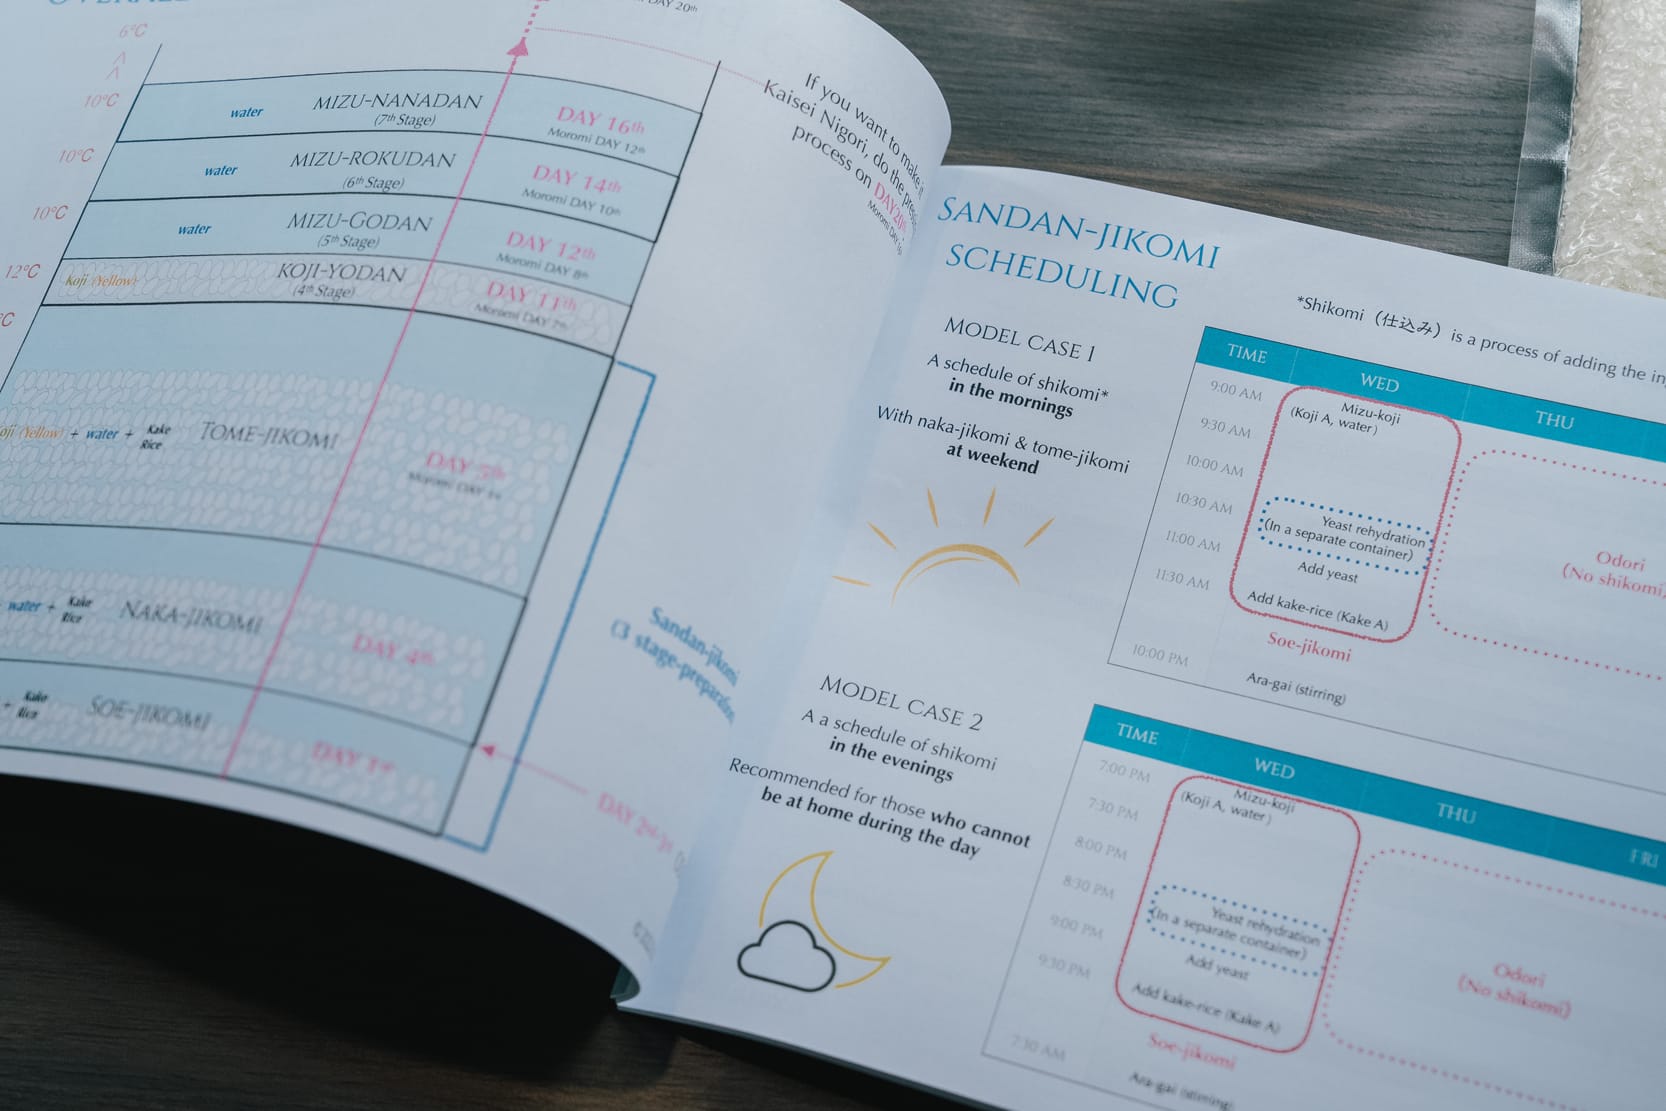 DAY 20th
6°C
10°C
water
MIZU-NANADAN
(7th Stage)
DAY 16th
Moromi DAY 12th
10°C
water
MIZU-ROKUDAN
(6th Stage)
DAY 14th
Moromi DAY 10th
10°C
water
MIZU-GODAN
(5th Stage)
DAY 12th
Moromi DAY 8th
12°C
Koji (Yellow)
KOJI-YODAN
(4th Stage)
DAY 11th
Moromi DAY 7th
°C
(Yellow) + water + Kake
Rice
TOME-JIKOMI
DAY 5th
Moromi DAY 1st
water + Kake
Rice
NAKA-JIKOMI
DAY 4th
+ Kake
Rice
SOE-JIKOMI
DAY 1st
Sandan-jikomi
(3 stage-preparation
DAY 2nd
If you want to make it
Kaisei Nigori, do the press
process on DAY20th
Moromi DAY
SANDAN-JIKOMI
SCHEDULING
*Shikomi (仕込み) is a process of adding the
MODEL CASE 1
A schedule of shikomi*
in the mornings
With naka-jikomi & tome-jikomi
at weekend
TIME
WED
THU
9:00 AM
9:30 AM
10:00 AM
10:30 AM
11:00 AM
11:30 AM
10:00 PM
Mizu-koji
(Koji A, water)
Yeast rehydration
(In a separate container)
Add yeast
Add kake-rice (Kake A)
Soe-jikomi
Ara-gai (stirring)
Odori
(No shikomi)
MODEL CASE 2
A a schedule of shikomi
in the evenings
Recommended for those who cannot
be at home during the day
TIME
WED
THU
FRI
7:00 PM
7:30 PM
8:00 PM
8:30 PM
9:00 PM
9:30 PM
7:30 AM
Mizu-koji
(Koji A, water)
Yeast rehydration
(In a separate container)
Add yeast
Add kake-rice (Kake A)
Soe-jikomi
Ara-gai (stirring)
Odori
(No shikomi)